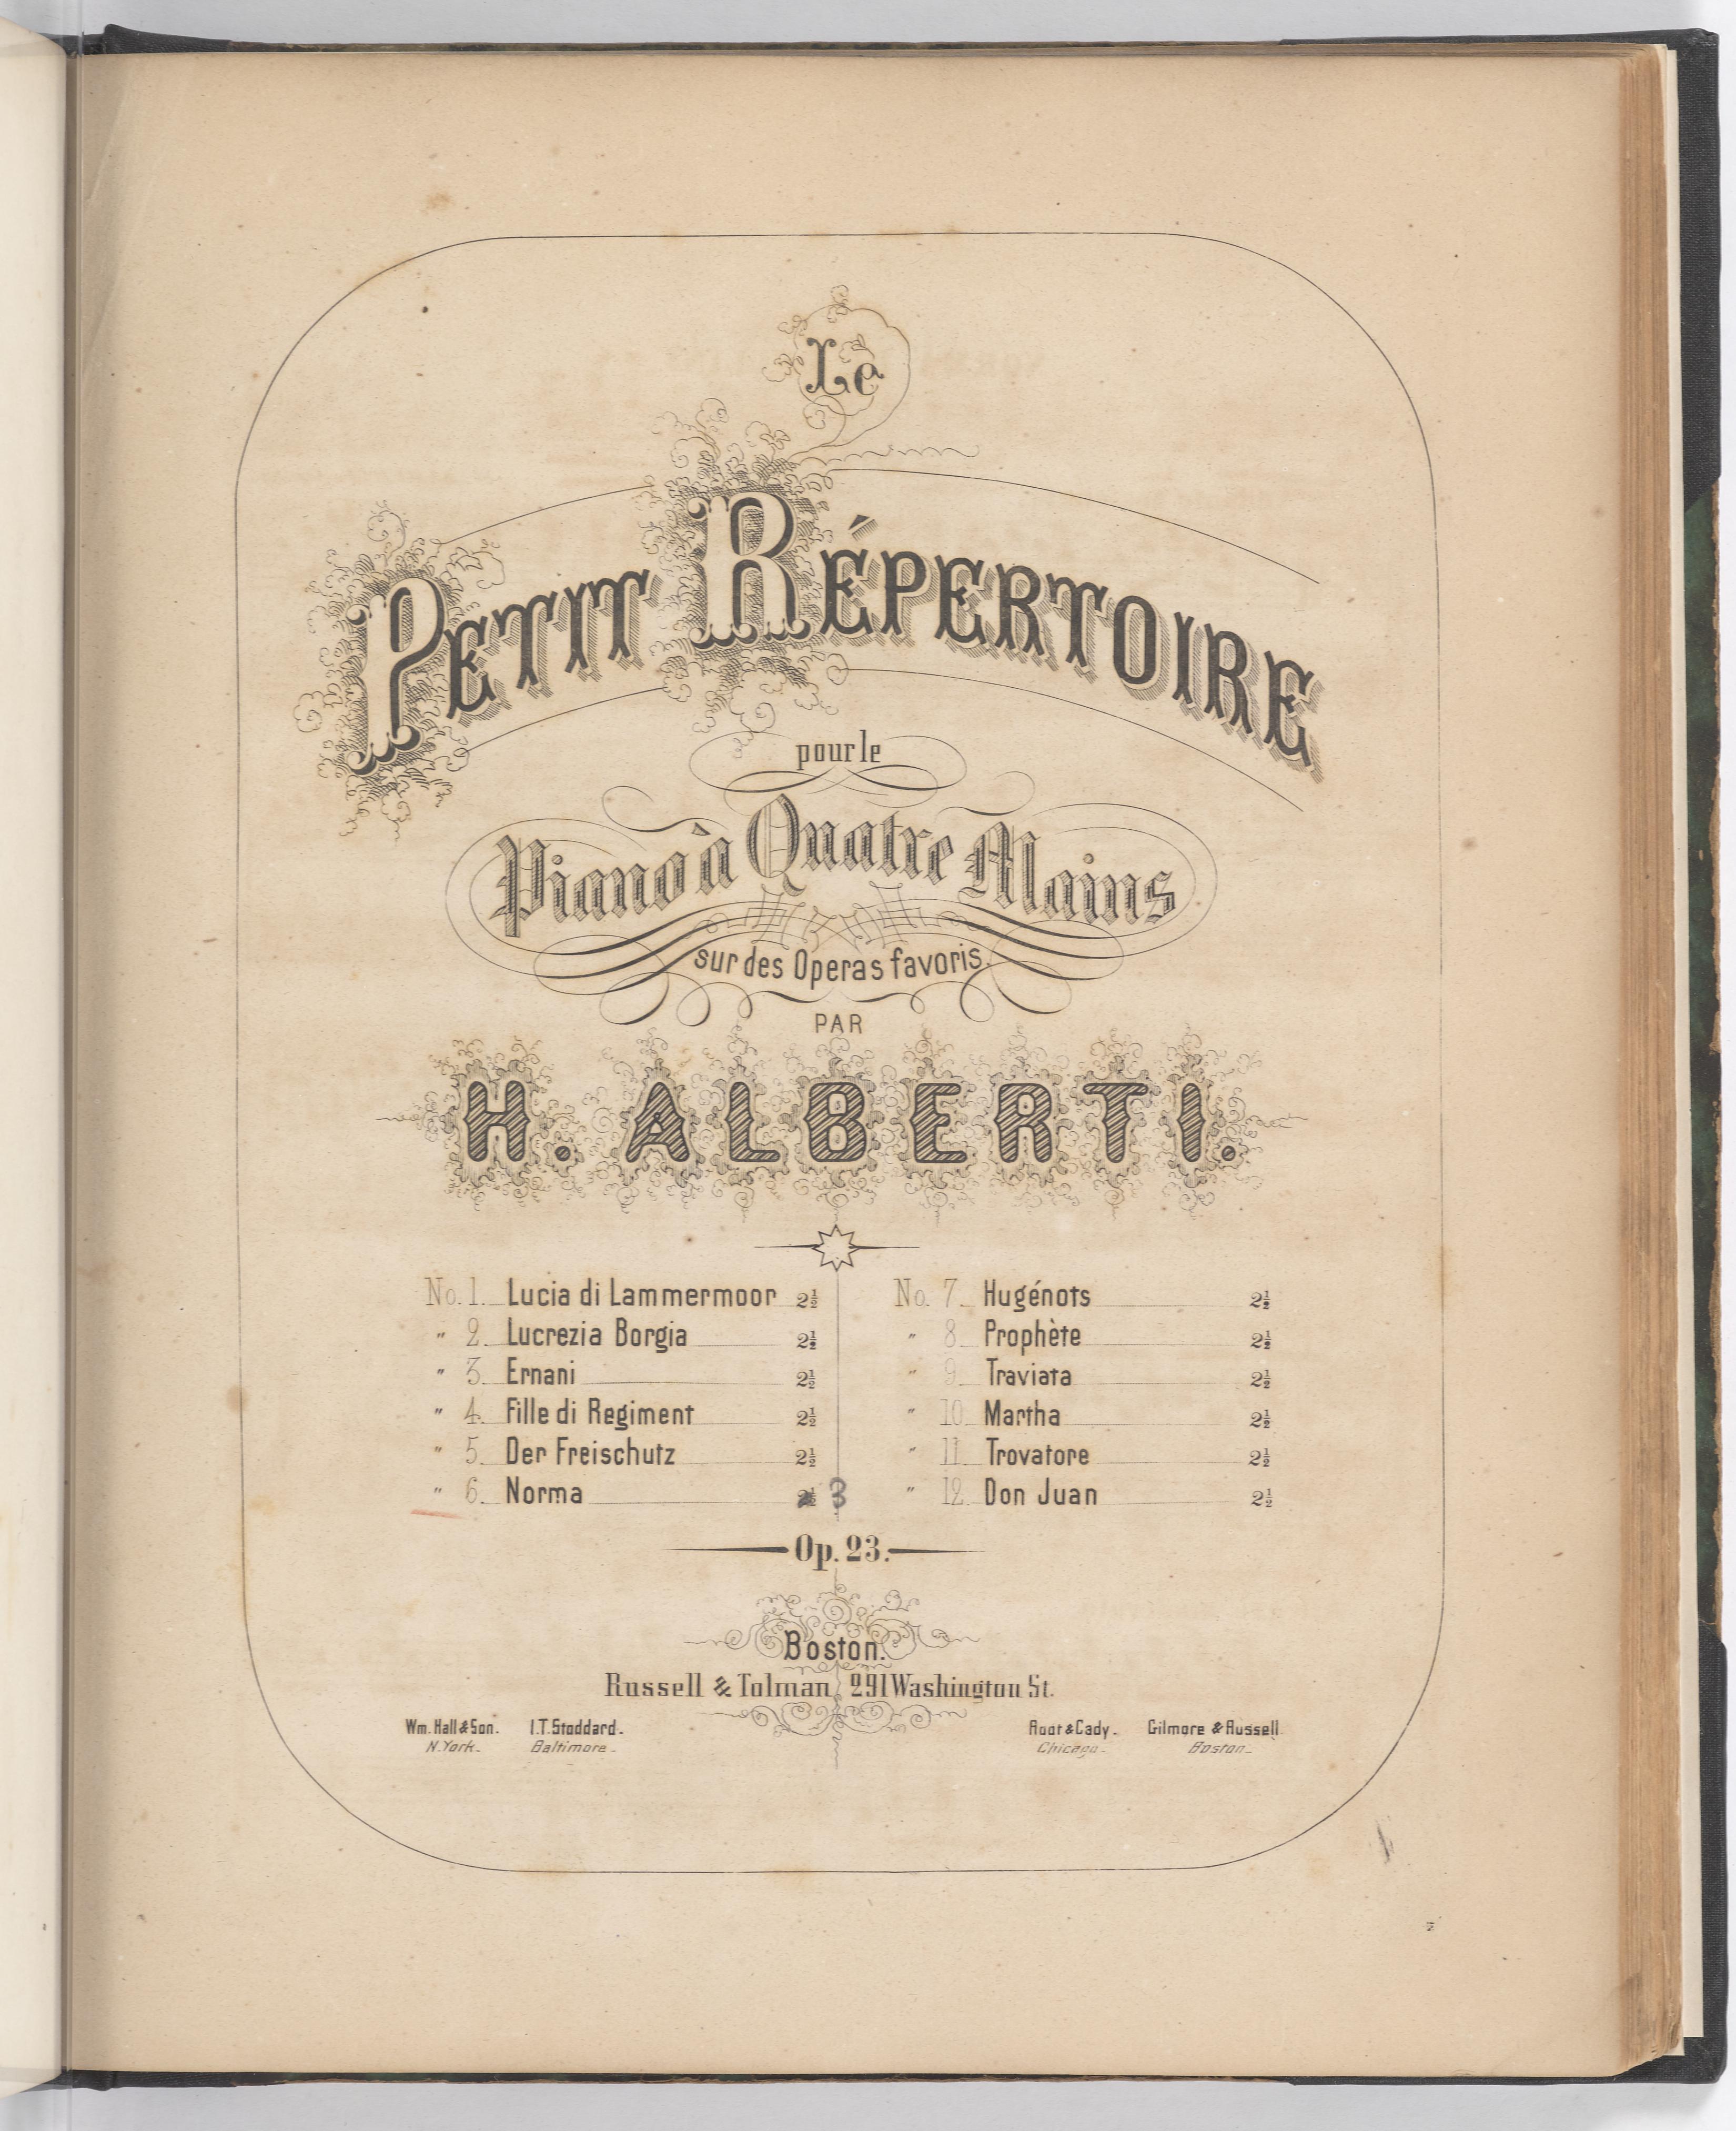 Le
PETIT RÉPERTOIRE
pour le
Piano à Quatre Mains
sur des Operas favoris.
PAR
H. ALBERTI.
No. 1. Lucia di Lammermoor 2½
" 2. Lucrezia Borgia 2½
" 3. Ernani 2½
" 4. Fille di Regiment 2½
" 5. Der Freischutz 2½
" 6. Norma 2½ 3
No. 7. Hugénots 2½
" 8. Prophète 2½
" 9. Traviata 2½
" 10. Martha 2½
" 11. Trovatore 2½
" 12. Don Juan 2½
Op. 23.
Boston.
Russell & Tolman, 291 Washington St.
Wm. Hall & Son. I.T. Stoddard. Root & Cady. Gilmore & Russell.
N. York. Baltimore. Chicago. Boston.